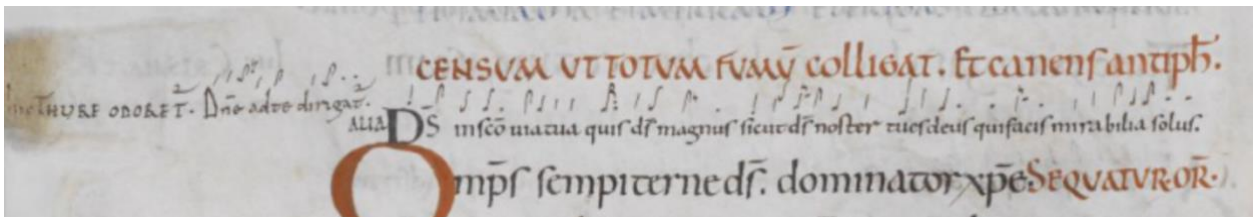 CENSVM VT TOTVM FVMV̄ COLLIGAT. Et canens antiph̄.
hoc THURE ODORET̄. Dn̄e ad te dirigat̄.
ALIA DS̄ in sc̄o uia tua quis ds̄ magnus sicut ds̄ noster tu es deus qui facis mirabilia solus.
Omp̄s sempiterne ds̄. dominator xp̄e SEQUATVR. OR̄.